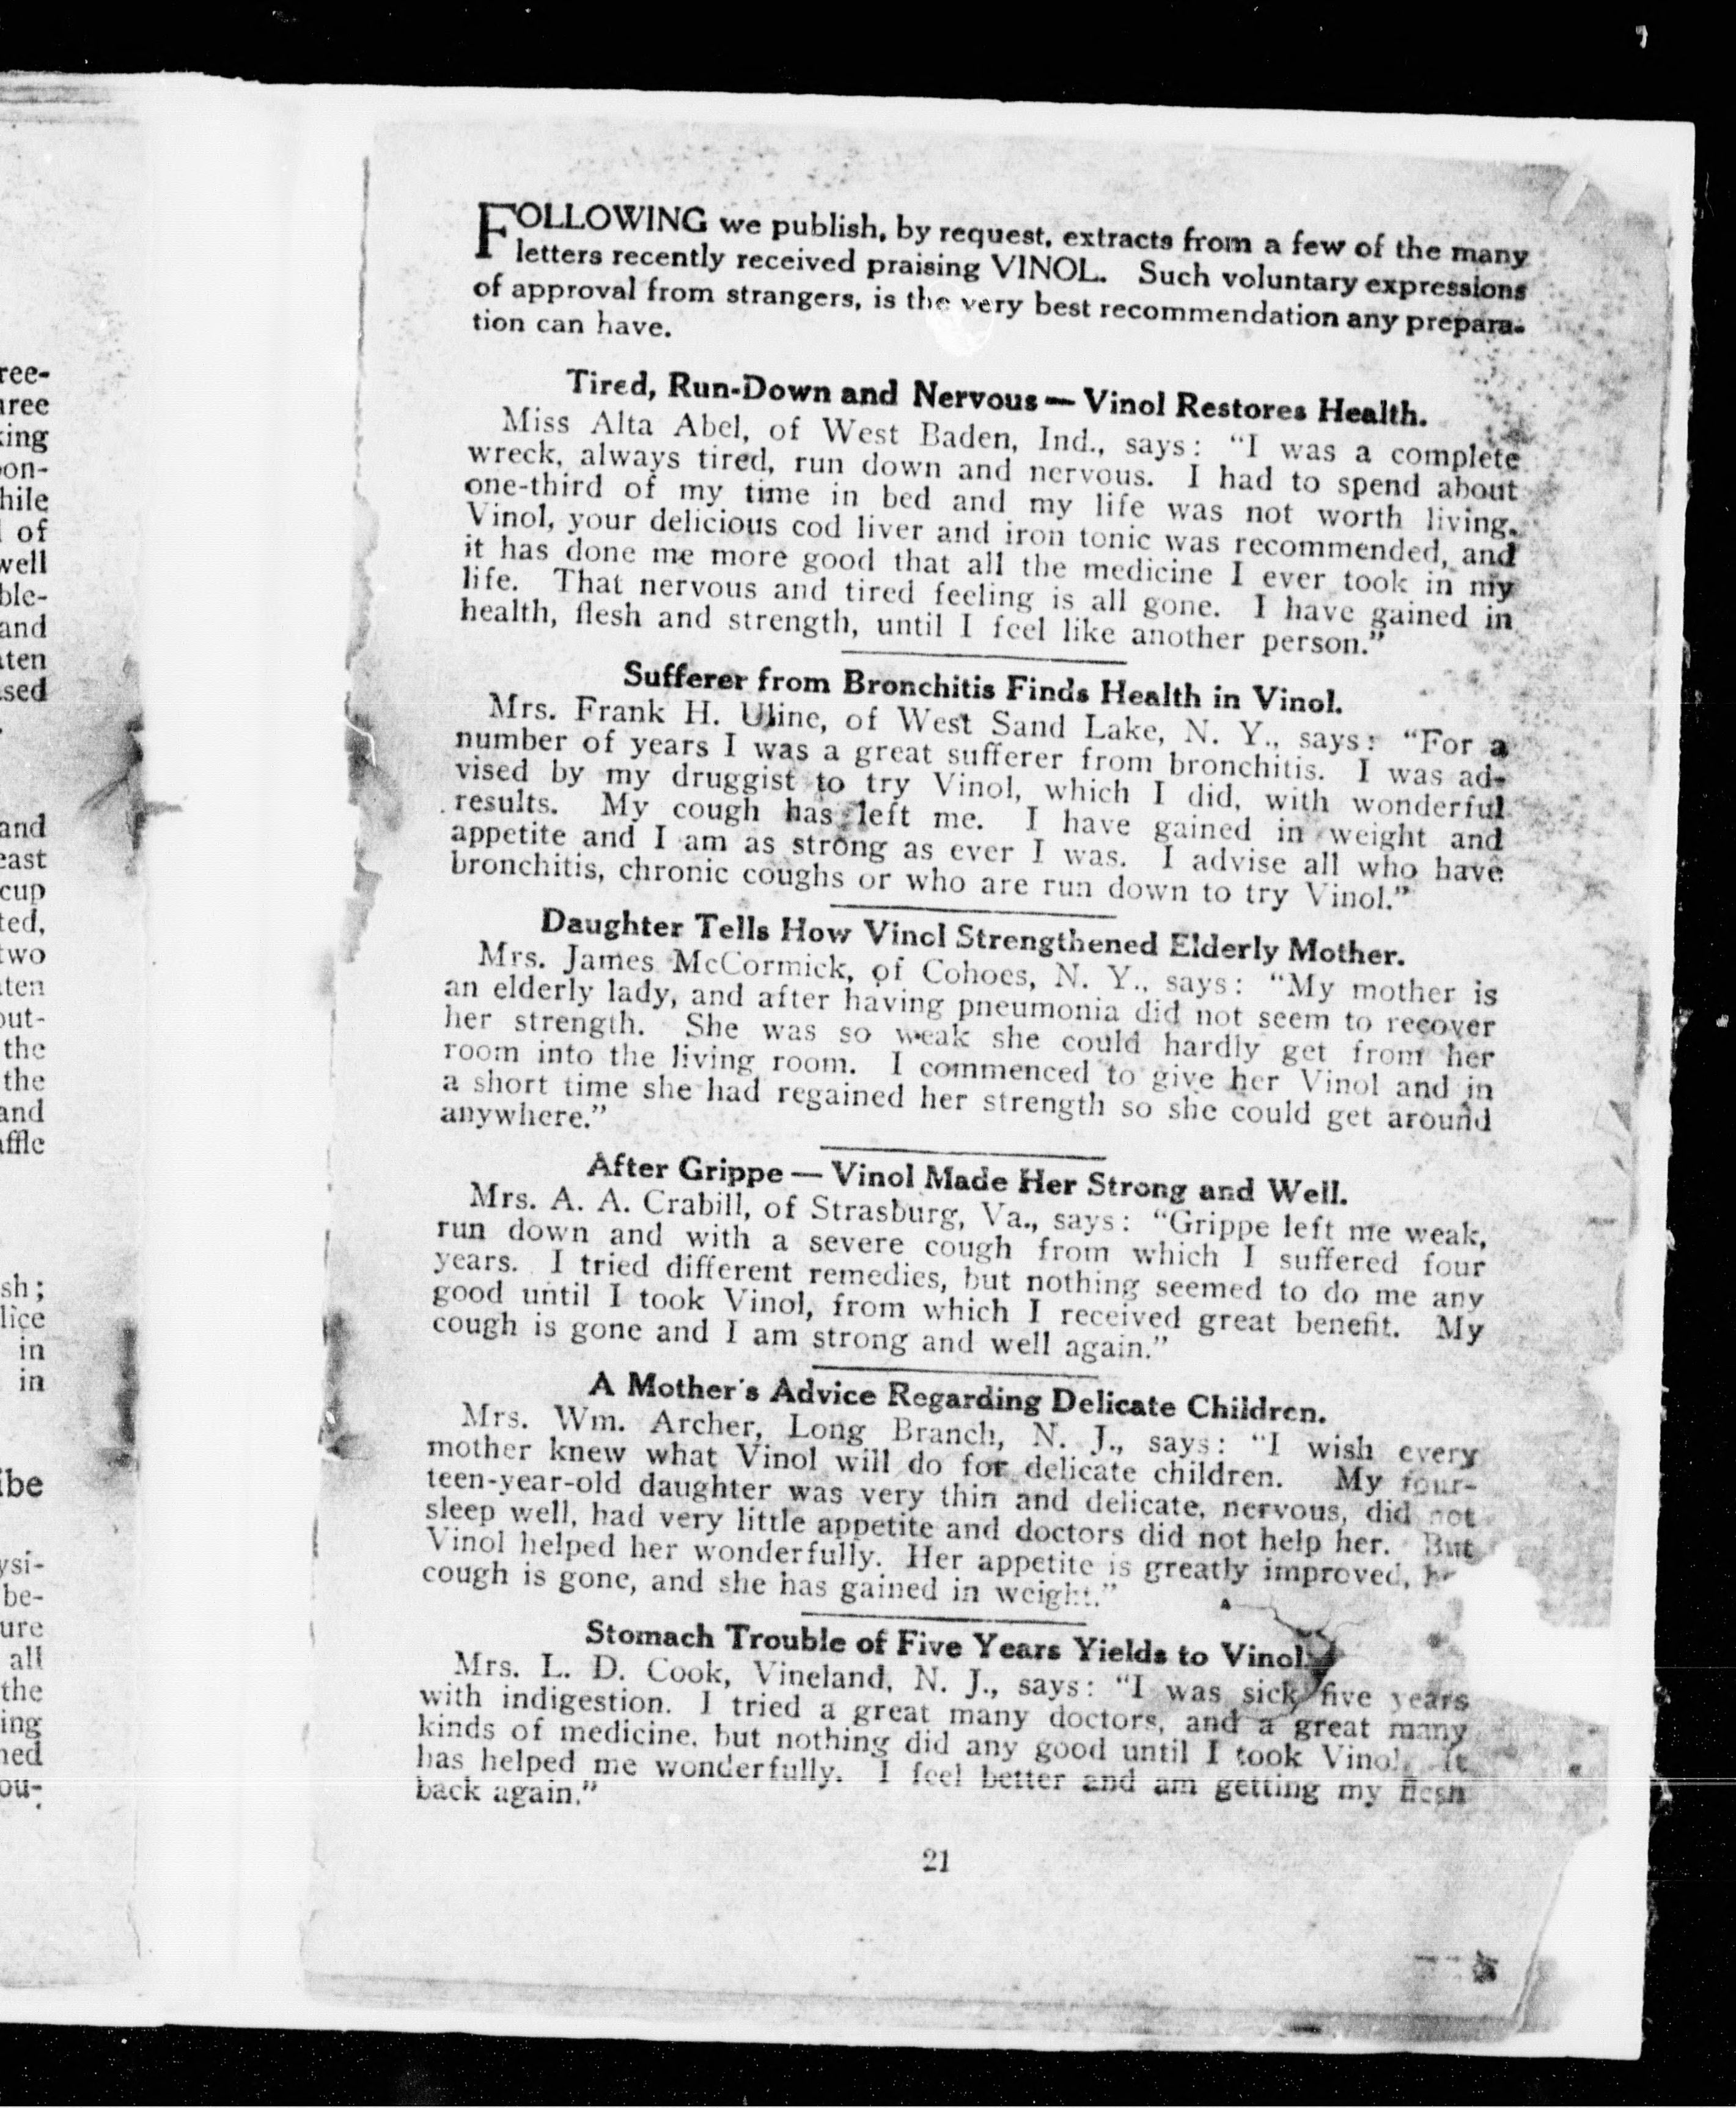 ree-
ree
king
on-
hile
of
well
ble-
and
ten
sed
and
east
cup
ted,
two
ten
out-
the
the
and
affle
sh;
lice
in
in
ibe
ysi-
be-
ure
all
the
ing
ned
ou-
FOLLOWING we publish, by request, extracts from a few of the many
letters recently received praising VINOL. Such voluntary expressions
of approval from strangers, is the very best recommendation any prepara-
tion can have.
Tired, Run-Down and Nervous — Vinol Restores Health.
Miss Alta Abel, of West Baden, Ind., says: "I was a complete
wreck, always tired, run down and nervous. I had to spend about
one-third of my time in bed and my life was not worth living.
Vinol, your delicious cod liver and iron tonic was recommended, and
it has done me more good that all the medicine I ever took in my
life. That nervous and tired feeling is all gone. I have gained in
health, flesh and strength, until I feel like another person."
Sufferer from Bronchitis Finds Health in Vinol.
Mrs. Frank H. Uline, of West Sand Lake, N. Y., says: "For a
number of years I was a great sufferer from bronchitis. I was ad-
vised by my druggist to try Vinol, which I did, with wonderful
results. My cough has left me. I have gained in weight and
appetite and I am as strong as ever I was. I advise all who have
bronchitis, chronic coughs or who are run down to try Vinol."
Daughter Tells How Vinol Strengthened Elderly Mother.
Mrs. James McCormick, of Cohoes, N. Y., says: "My mother is
an elderly lady, and after having pneumonia did not seem to recover
her strength. She was so weak she could hardly get from her
room into the living room. I commenced to give her Vinol and in
a short time she had regained her strength so she could get around
anywhere."
After Grippe — Vinol Made Her Strong and Well.
Mrs. A. A. Crabill, of Strasburg, Va., says: "Grippe left me weak,
run down and with a severe cough from which I suffered four
years. I tried different remedies, but nothing seemed to do me any
good until I took Vinol, from which I received great benefit. My
cough is gone and I am strong and well again."
A Mother's Advice Regarding Delicate Children.
Mrs. Wm. Archer, Long Branch, N. J., says: "I wish every
mother knew what Vinol will do for delicate children. My four-
teen-year-old daughter was very thin and delicate, nervous, did not
sleep well, had very little appetite and doctors did not help her. But
Vinol helped her wonderfully. Her appetite is greatly improved,
cough is gone, and she has gained in weight."
Stomach Trouble of Five Years Yields to Vinol.
Mrs. L. D. Cook, Vineland, N. J., says: "I was sick five years
with indigestion. I tried a great many doctors, and a great many
kinds of medicine, but nothing did any good until I took Vinol. It
has helped me wonderfully. I feel better and am getting my flesh
back again."
21